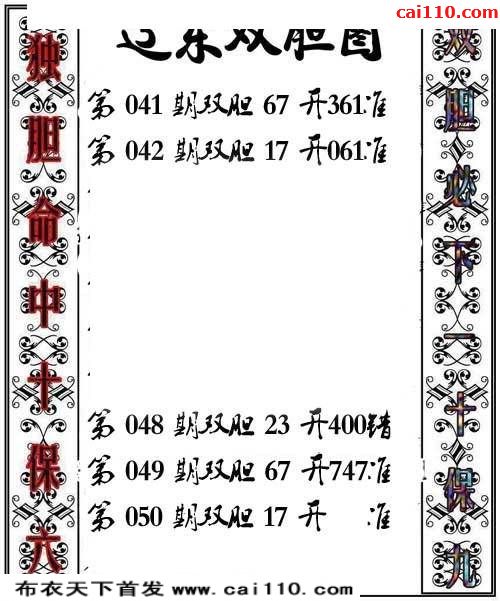 cai110.com
辽东双胆图
第 041 期双胆 67 开361准
第 042 期双胆 17 开061准
第 048 期双胆 23 开400错
第 049 期双胆 67 开747准
第 050 期双胆 17 开 准
独胆命中十保六
双胆必下一十保九
布衣天下首发 www.cai110.com